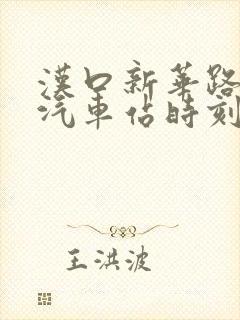 漢口新華路
汽車佔時刻
王洪波